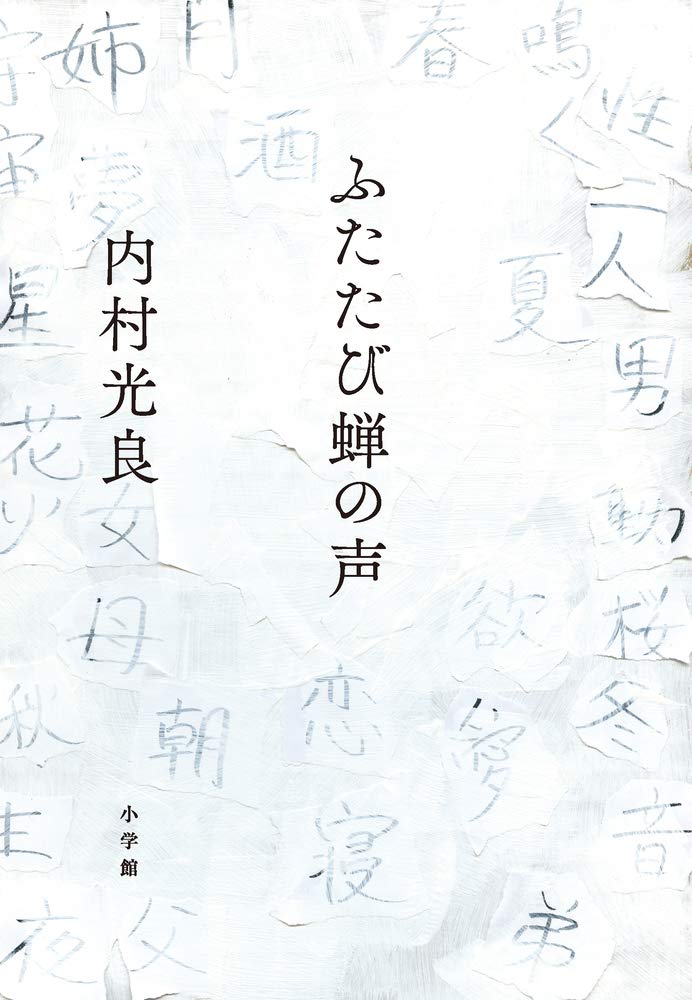 ふたたび蝉の声
内村光良
小学館
姉
月
春
鳴く
性
宇宙
酒
夢
二人
夏
星
男
花火
女
動
欲
桜
母
秋
朝
恋
愛
冬
生
寝
音
夜
父
弟